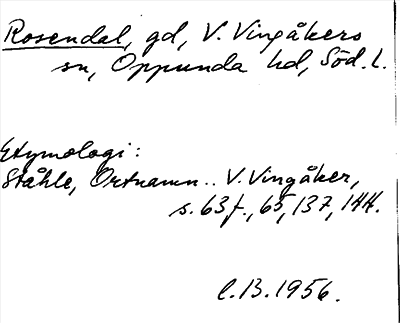 Rosendal, gd, V. Vingåkers
sn, Oppunda hd, Söd. l.
Etymologi:
Ståhle, Ortnamn.. V. Vingåker,
s. 63 f., 65, 137, 144.
C.B. 1956.